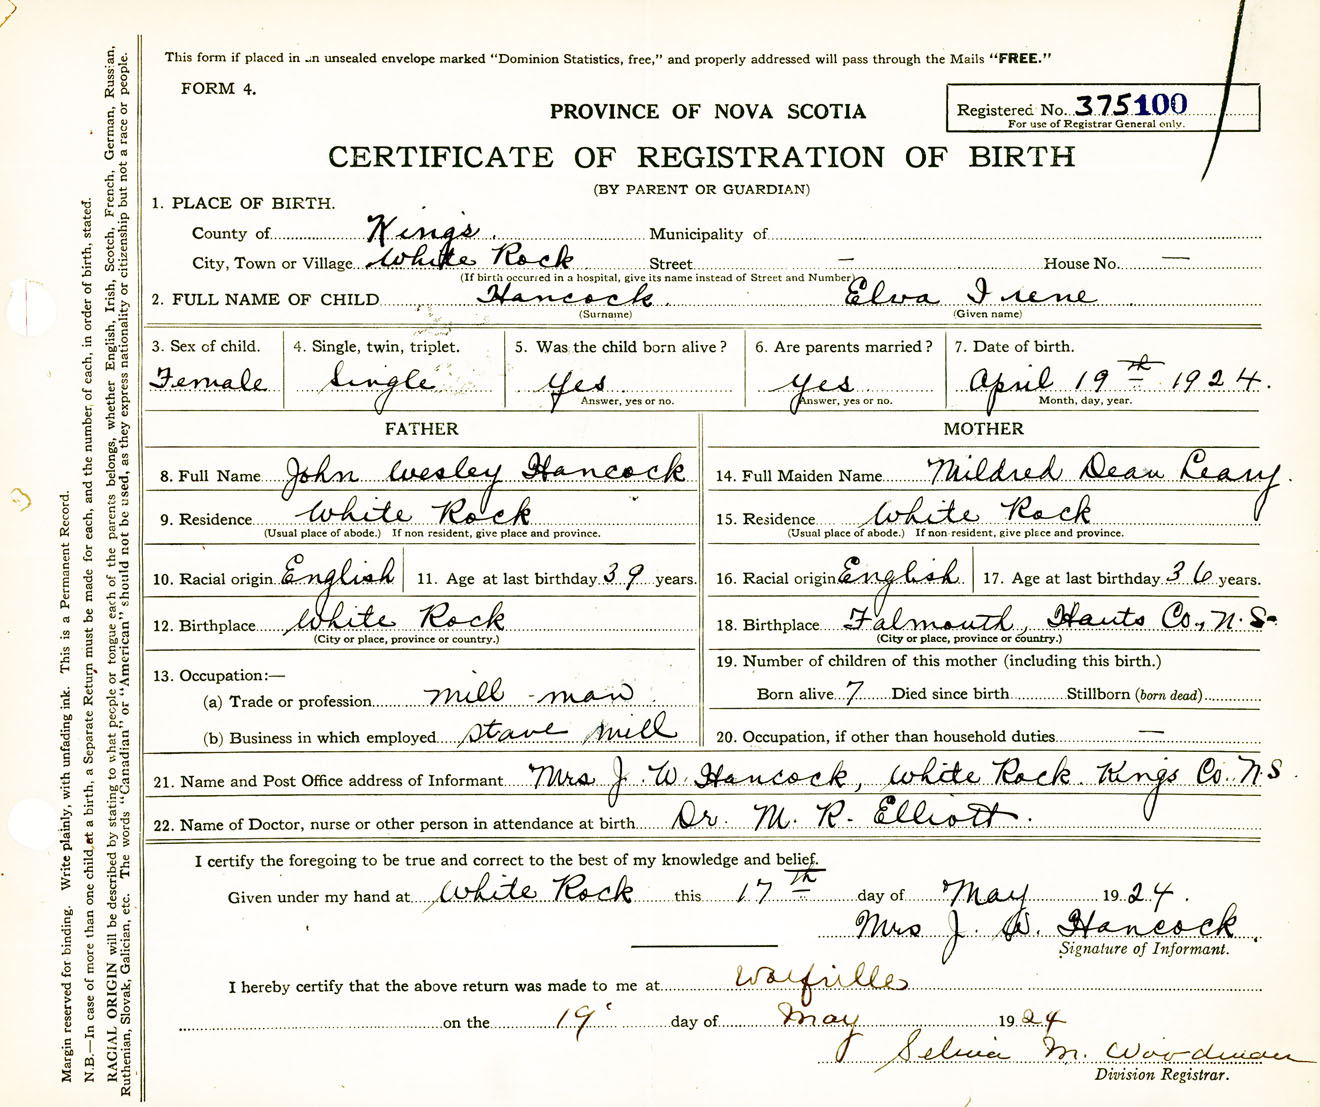 This form if placed in an unsealed envelope marked “Dominion Statistics, free,” and properly addressed will pass through the Mails “FREE.”
FORM 4.
Registered No. 375100
For use of Registrar General only.
PROVINCE OF NOVA SCOTIA
CERTIFICATE OF REGISTRATION OF BIRTH
(BY PARENT OR GUARDIAN)
1. PLACE OF BIRTH.
County of Kings. Municipality of
City, Town or Village White Rock Street — House No. —
(If birth occurred in a hospital, give its name instead of Street and Number)
2. FULL NAME OF CHILD Hancock. Elva Irene
(Surname) (Given name)
3. Sex of child. 4. Single, twin, triplet. 5. Was the child born alive? 6. Are parents married? 7. Date of birth.
Female Single Yes Yes April 19th 1924.
Answer, yes or no. Answer, yes or no. Month, day, year.
FATHER MOTHER
8. Full Name John Wesley Hancock 14. Full Maiden Name Mildred Dean Leary.
9. Residence White Rock 15. Residence White Rock
(Usual place of abode.) If non resident, give place and province. (Usual place of abode.) If non-resident, give place and province.
10. Racial origin English 11. Age at last birthday 39 years. 16. Racial origin English. 17. Age at last birthday 36 years.
12. Birthplace White Rock 18. Birthplace Falmouth, Hants Co., N.S.
(City or place, province or country.) (City or place, province or country.)
13. Occupation:— 19. Number of children of this mother (including this birth.)
(a) Trade or profession mill-man Born alive 7 Died since birth Stillborn (born dead)
(b) Business in which employed stave mill 20. Occupation, if other than household duties —
21. Name and Post Office address of Informant Mrs J. W. Hancock, White Rock Kings Co. N.S.
22. Name of Doctor, nurse or other person in attendance at birth Dr. M. R. Elliott.
I certify the foregoing to be true and correct to the best of my knowledge and belief.
Given under my hand at White Rock this 17th day of May 1924.
Mrs J. W. Hancock.
Signature of Informant.
I hereby certify that the above return was made to me at Wolfville
on the 19 day of May 1924
Selina M. Woodman
Division Registrar.
Margin reserved for binding. Write plainly, with unfading ink. This is a Permanent Record.
N.B.—In case of more than one child at a birth, a Separate Return must be made for each, and the number of each, in order of birth, stated.
RACIAL ORIGIN will be described by stating to what people or tongue each of the parents belongs, whether English, Irish, Scotch, French, German, Russian,
Ruthenian, Slovak, Galician, etc. The words “Canadian” or “American” should not be used, as they express nationality or citizenship but not a race or people.